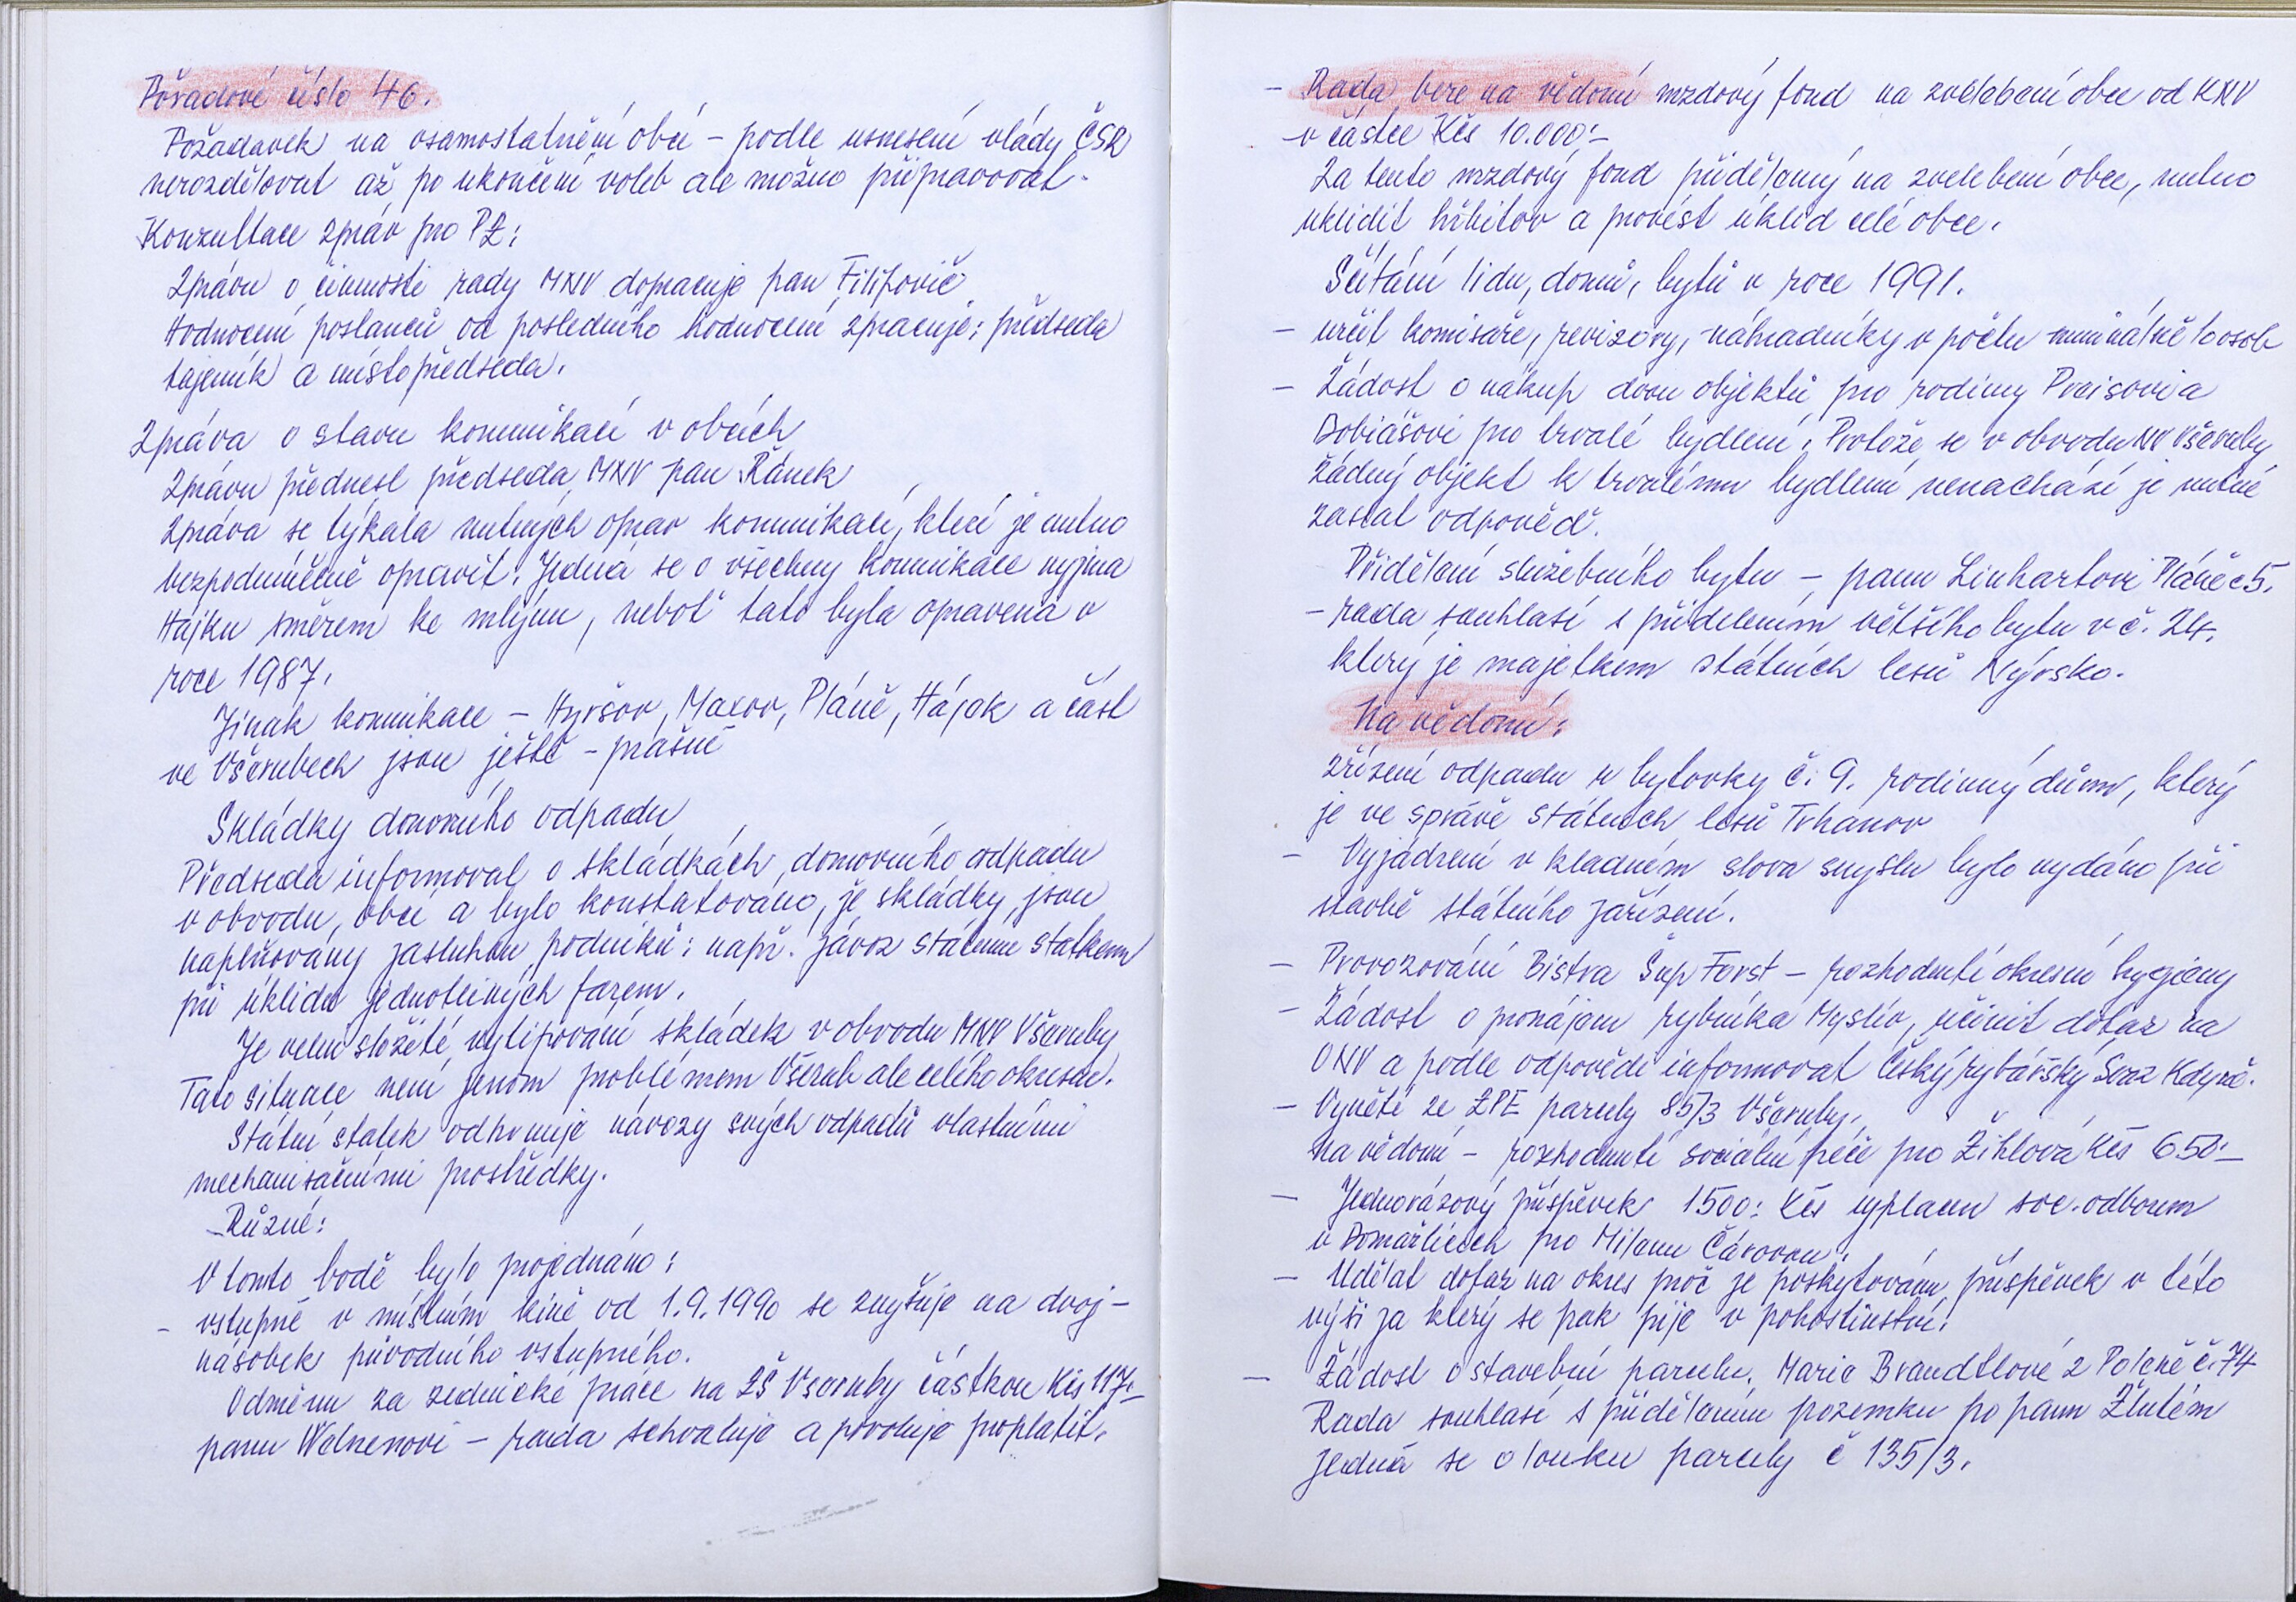 Pořadové číslo 46.
Požadavek na osamostatnění obcí – podle usnesení vlády ČSR
nerozdělovat až po ukončení voleb ale možno připravovat.
Konzultace zpráv pro PZ:
Zprávu o činnosti rady MNV dopracuje pan Filipovič
Hodnocení poslanců od posledního hodnocení zpracuje: předseda
tajemník a místopředseda.
Zpráva o stavu komunikací v obcích
Zprávu přednesl předseda MNV pan Řánek
Zpráva se týkala nutných oprav komunikací, které je nutno
bezpodmínečně opravit. Jedná se o všechny komunikace vyjma
Hájku směrem ke mlýnu, neboť tato byla opravena v
roce 1987.
Jinak komunikace – Hyršov, Maxov, Pláně, Hájek a část
ve Všerubech jsou ještě – prašné
Skládky domovního odpadu
Předseda informoval o skládkách domovního odpadu
v obvodu, obcí a bylo konstatováno, že skládky jsou
naplňovány zásluhou podniků: např. závoz státním statkem
při úklidu jednotlivých farem.
Je velmi složité vytipování skládek v obvodu MNV Všeruby
Tato situace není jenom problémem Všerub ale celého okresu.
Státní statek odhrnuje návozy svých odpadů vlastními
mechanisačními prostředky.
Různé:
V tomto bodě bylo projednáno:
– vstupné v místním kině od 1.9.1990 se zvyšuje na dvoj-
násobek původního vstupného.
Odměnu za zednické práce na ZŠ Všeruby částkou Kčs 117.–
panu Welnerovi – rada schvaluje a povoluje proplatit.
– Rada bere na vědomí mzdový fond na zvelebení obce od KNV
v částce Kčs 10.000.–
Za tento mzdový fond přidělený na zvelebení obce, nutno
uklidit hřbitov a provést úklid celé obce.
Sčítání lidu, domů, bytů v roce 1991.
– určit komisaře, revizory, náhradníky v počtu minimálně 10 osob
– Žádost o nákup dvou objektů pro rodiny Preisovi a
Dobiášovi pro trvalé bydlení. Protože se v obvodu NV Všeruby
žádný objekt k trvalému bydlení nenachází je nutné
zaslat odpověď.
Přidělení služebního bytu – panu Linhartovi Pláně č 5.
– rada souhlasí s přidelením většího bytu v č. 24.
který je majetkem státních lesů Nýrsko.
Na vědomí:
zřízení odpadu u bytovky č. 9. rodinný dům, který
je ve správě státních lesů Trhanov
– Vyjádření v kladném slova smyslu bylo vydáno při
stavbě státního zařízení.
– Provozování Bistra Šup Forst – rozhodnutí okresní hygieny
– Žádost o pronájem rybníka Myslív, učinit dotaz na
ONV a podle odpovědi informovat Český rybářský Svaz Kdyně.
– Vynětí ze ZPF parcely 85/3 Všeruby.
Na vědomí – rozhodnutí sociální péče pro Žihlová Kčs 650.–
– Jednorázový příspěvek 1500: Kčs vyplacen soc. odborem
v Domažlicích pro Milenu Čárovou.
– Udělat dotaz na okres proč je poskytován příspěvek v této
výši za který se pak pije v pohostinství.
– Žádost o stavební parcelu. Marie Brandtlové z Poleně č. 74
Rada souhlasí s přidělením pozemku po panu Žlutém
jedná se o louku parcely č 135/3.